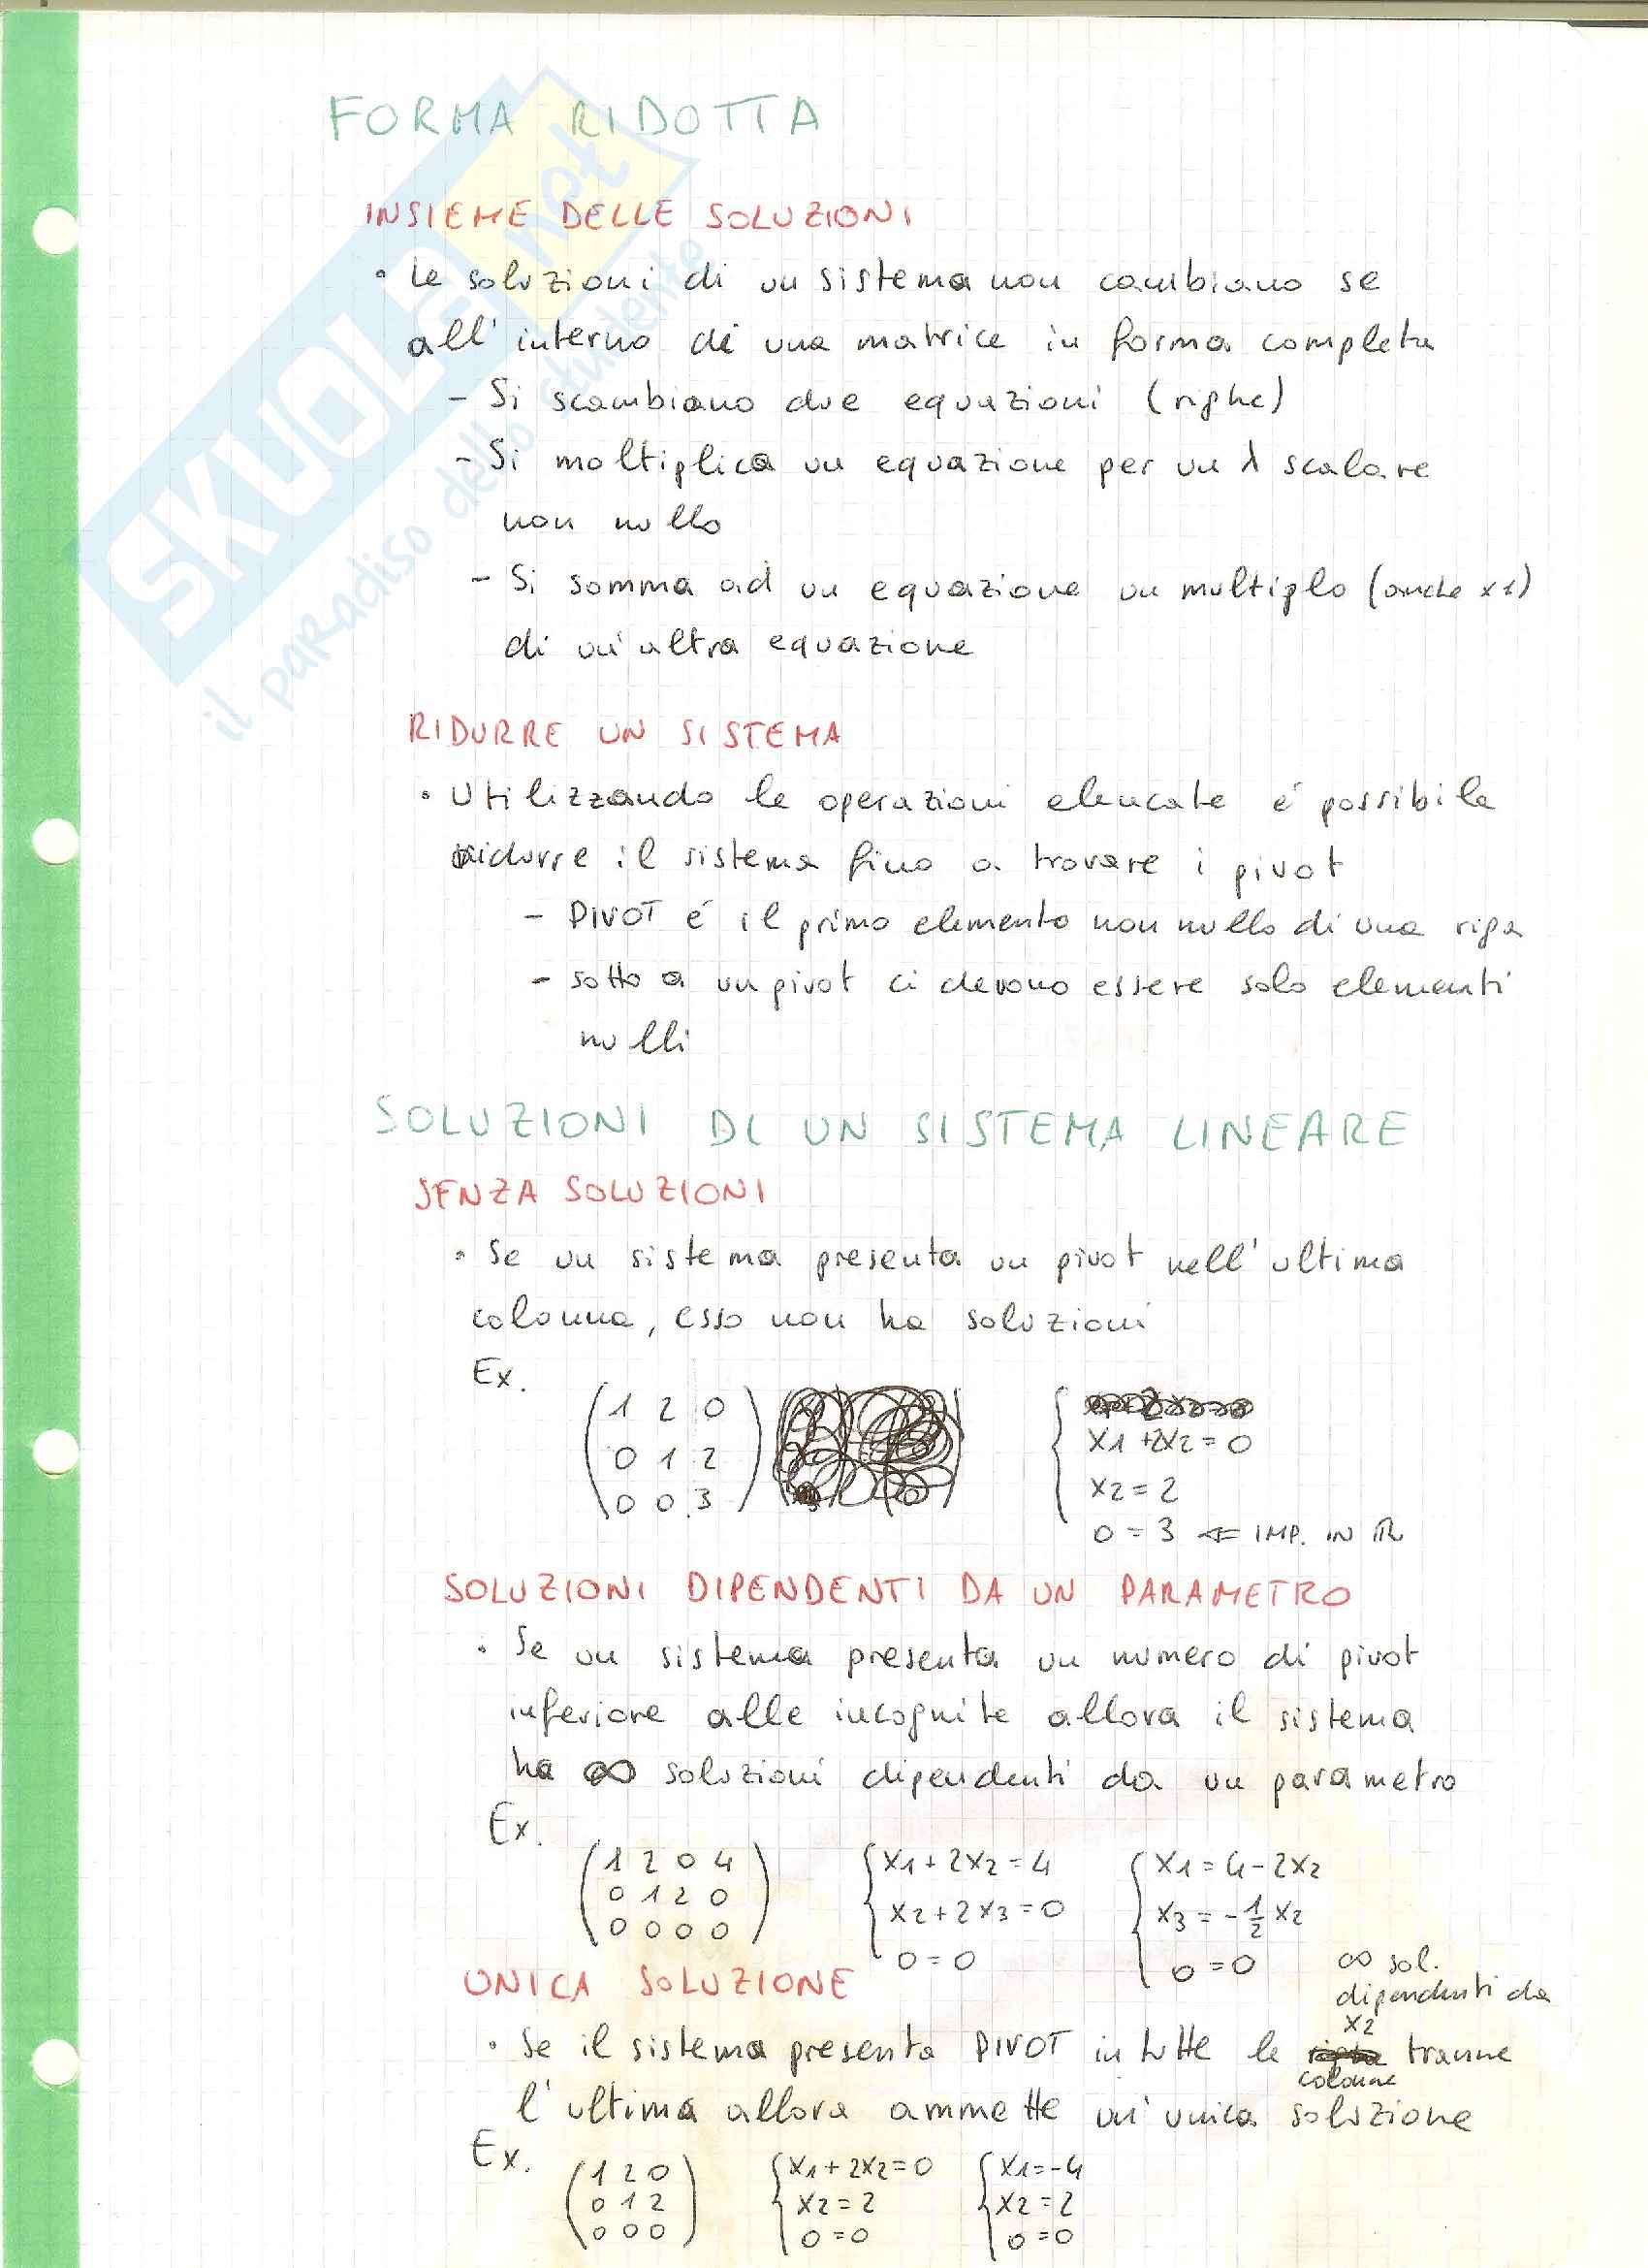 FORMA RIDOTTA
INSIEME DELLE SOLUZIONI
• Le soluzioni di un sistema non cambiano se
all'interno di una matrice in forma completa
- Si scambiano due equazioni (righe)
- Si moltiplica un equazione per un λ scalare
non nullo
- Si somma ad un equazione un multiplo (anche x1)
di un'altra equazione
RIDURRE UN SISTEMA
• Utilizzando le operazioni elencate é possibile
ridurre il sistema fino a trovare i pivot
- PIVOT é il primo elemento non nullo di una riga
- sotto a un pivot ci devono essere solo elementi
nulli
SOLUZIONI DI UN SISTEMA LINEARE
SENZA SOLUZIONI
• Se un sistema presenta un pivot nell'ultima
colonna, esso non ha soluzioni
Ex.
1 2 0
0 1 2
0 0 3
x1 + 2x2 = 0
x2 = 2
0 = 3 ⇐ IMP. IN ℝ
SOLUZIONI DIPENDENTI DA UN PARAMETRO
• Se un sistema presenta un numero di pivot
inferiore alle incognite allora il sistema
ha ∞ soluzioni dipendenti da un parametro
Ex.
1 2 0 4
0 1 2 0
0 0 0 0
x1 + 2x2 = 4
x2 + 2x3 = 0
0 = 0
x1 = 4 - 2x2
x3 = -1/2 x2
0 = 0
∞ sol.
dipendenti da
x2
UNICA SOLUZIONE
• Se il sistema presenta PIVOT in tutte le colonne tranne
l'ultima allora ammette un'unica soluzione
Ex.
1 2 0
0 1 2
0 0 0
x1 + 2x2 = 0
x2 = 2
0 = 0
x1 = -4
x2 = 2
0 = 0
SKUOLA.net
il paradiso dello studente